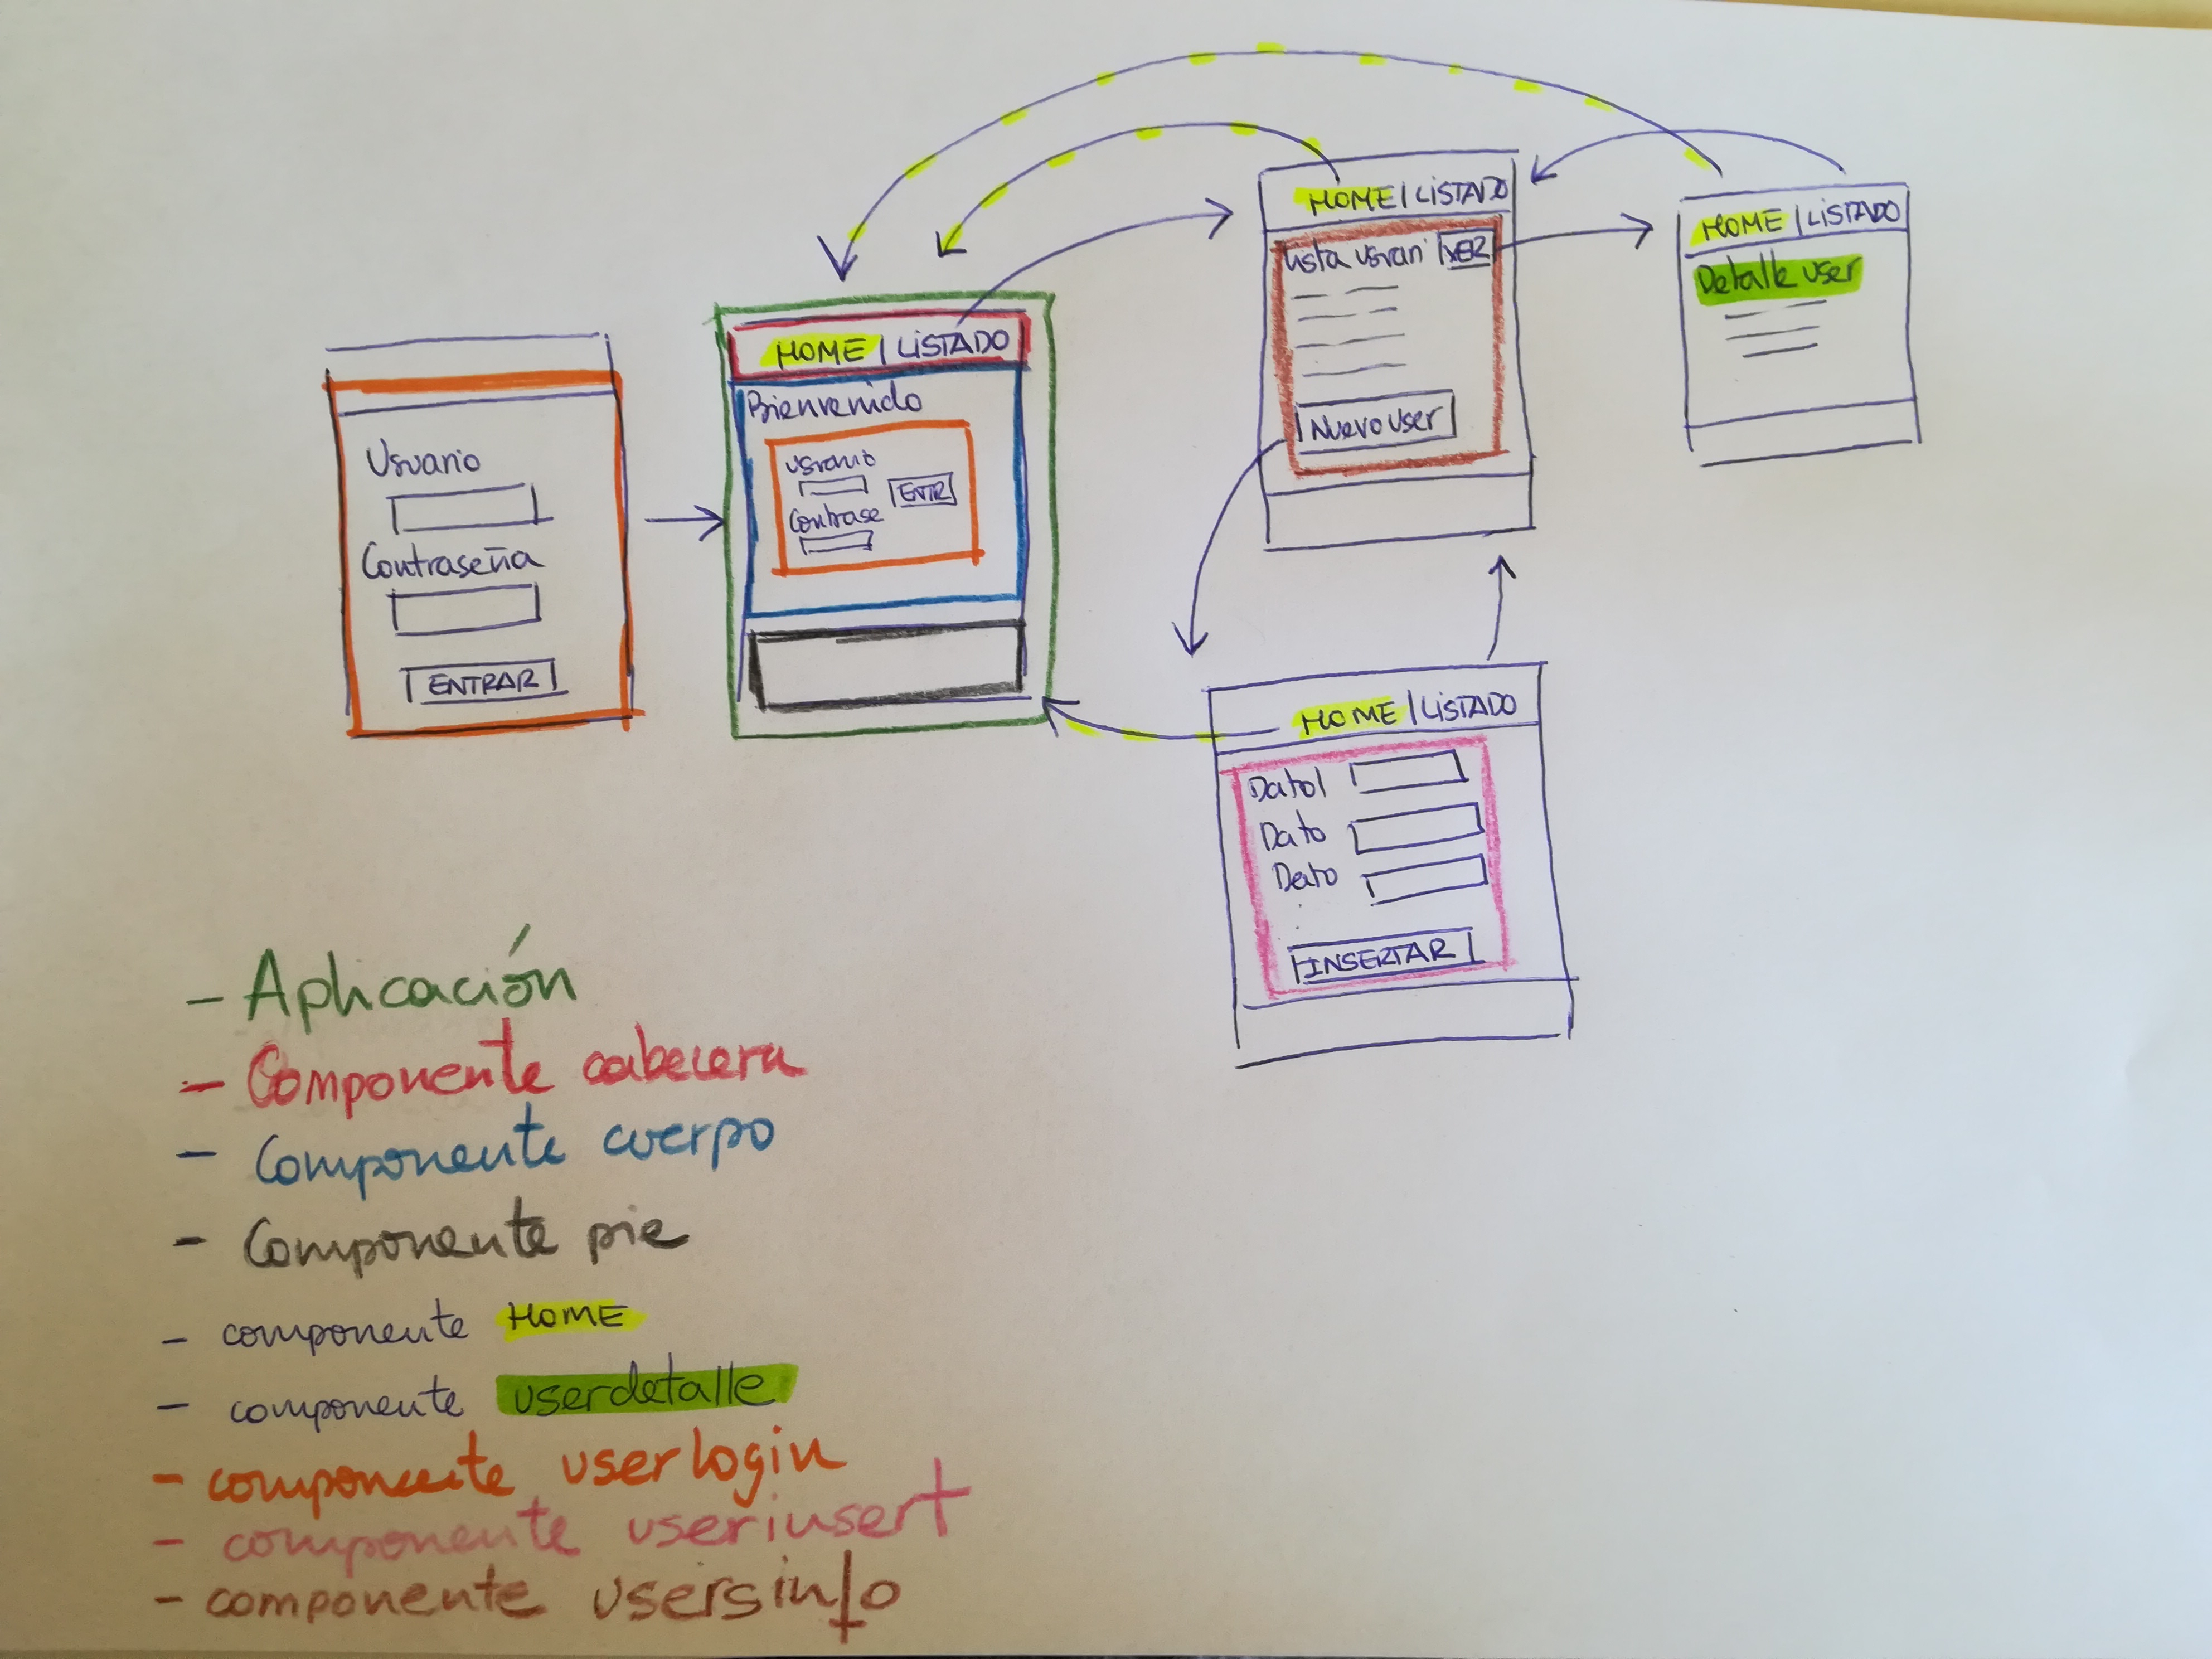 Usuario
Contraseña
ENTRAR
HOME | LiSTADO
Bienvenido
usuario
ENTR
Contrase
HOME | LiSTADO
Lista usuari VER
Nuevo user
HOME | LiSTADO
Detalle user
HOME | LiSTADO
Dato1
Dato
Dato
INSERTAR
- Aplicación
- Componente cabecera
- Componente cuerpo
- Componente pie
- componente HOME
- componente userdetalle
- componente userlogin
- componente userinsert
- componente usersinfo